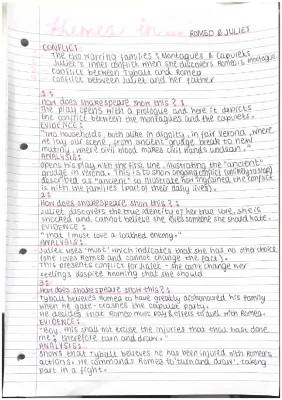 themes in...
ROMEO & JULIET
CONFLICT:
The two warring families : Montagues & Capulets
Juliet's inner conflict when she discovers Romeo is Montague
Conflict between Tybalt and Romeo
Conflict between Juliet and her father
1:
How does Shakespeare show this?:
The play opens with a prologue and here it depicts
the conflict between the Montagues and the Capulets.
EVIDENCE:
"Two households, both alike in dignity, in fair Verona, where
we lay our scene, from ancient grudge break to new
mutiny, where civil blood makes civil hands unclean."
ANALYSIS:
Opens his play with the first line, illustrating the "ancient"
grudge in Verona. This is to show ongoing conflict
described as "ancient" to illustrate how ingrained the conflict
is with the families (part of their daily lives).
2:
How does Shakespeare show this?:
Juliet discovers the true identity of her true love, she is
shocked and cannot believe she loves someone she should hate.
EVIDENCE:
"That I must love a loathed enemy."
ANALYSIS:
Juliet uses "must" which indicates that she has no other choice
(she loves Romeo and cannot change the fact).
This presents conflict for Juliet - she can't change her
feelings despite knowing that she should
3:
How does Shakespeare show this?:
Tybalt believes Romeo to have greatly dishonoured his family
when he gate-crashes the Capulet party.
He decides that Romeo must pay & offers to duel with Romeo.
EVIDENCE:
"Boy, this shall not excuse the injuries that thou hast done
me; therefore turn and draw."
ANALYSIS:
Shows that Tybalt believes he has been injured with Romeo's
actions. He commands Romeo to 'turn and draw', taking
part in a fight.